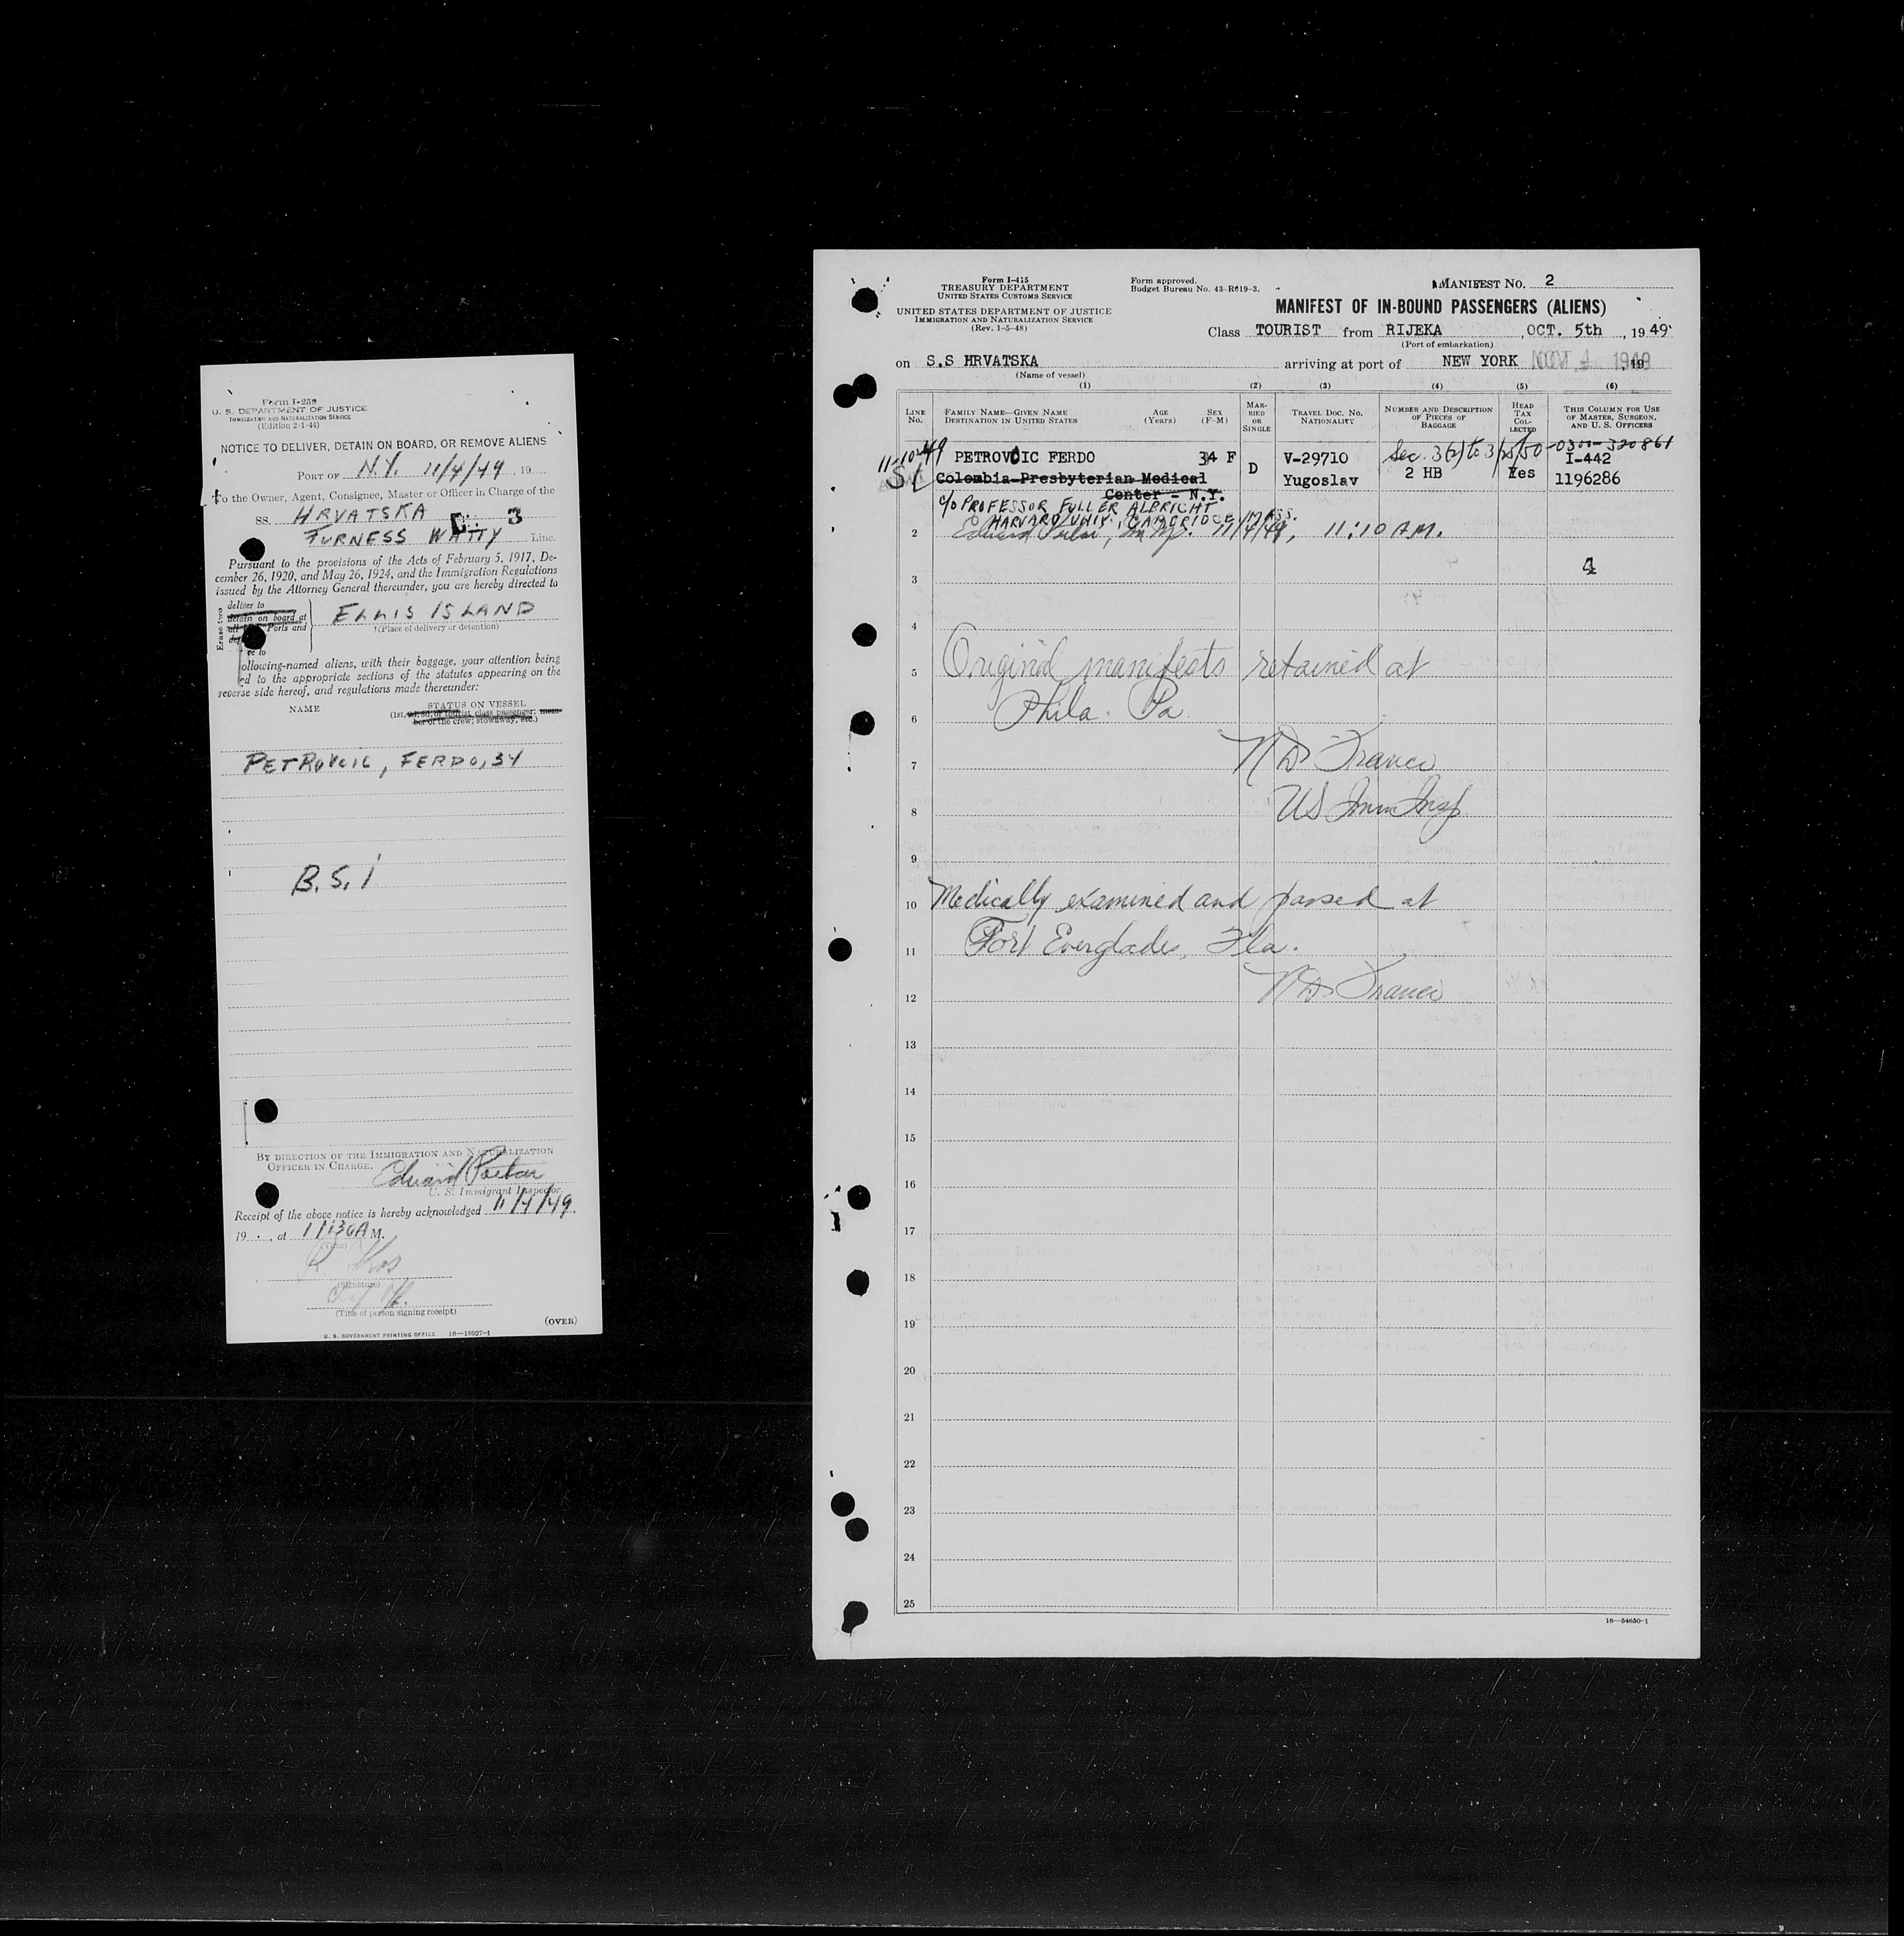 Form I-259
U. S. DEPARTMENT OF JUSTICE
IMMIGRATION AND NATURALIZATION SERVICE
(Edition 2-1-44)
NOTICE TO DELIVER, DETAIN ON BOARD, OR REMOVE ALIENS
PORT OF N.Y. 11/4/49, 19
To the Owner, Agent, Consignee, Master or Officer in Charge of the
SS. HRVATSKA 3
FURNESS WATTY Line.
Pursuant to the provisions of the Acts of February 5, 1917, De-
cember 26, 1920, and May 26, 1924, and the Immigration Regulations
issued by the Attorney General thereunder, you are hereby directed to
Erase two
deliver to
detain on board at
Ports and
ELLIS ISLAND
†(Place of delivery or detention)
ollowing-named aliens, with their baggage, your attention being
ed to the appropriate sections of the statutes appearing on the
reverse side hereof, and regulations made thereunder:
NAME STATUS ON VESSEL
(1st, 2d, 3d, or tourist class passenger; mem-
ber of the crew; stowaway, etc.)
PETROVCIC, FERDO, 34
B.S.I
BY DIRECTION OF THE IMMIGRATION AND NATURALIZATION
OFFICER IN CHARGE.
Edward
U. S. Immigrant Inspector.
Receipt of the above notice is hereby acknowledged 11/4/49,
19 , at 11:30 A M.
(Time)
(Signature)
(Title of person signing receipt)
(OVER)
U. S. GOVERNMENT PRINTING OFFICE 16—18027-1
Form I-415
TREASURY DEPARTMENT
UNITED STATES CUSTOMS SERVICE
UNITED STATES DEPARTMENT OF JUSTICE
IMMIGRATION AND NATURALIZATION SERVICE
(Rev. 1-5-48)
Form approved.
Budget Bureau No. 43-R619-3.
MANIFEST NO. 2
MANIFEST OF IN-BOUND PASSENGERS (ALIENS)
Class TOURIST from RIJEKA, OCT. 5th, 1949
(Port of embarkation)
on S.S HRVATSKA arriving at port of NEW YORK NOV 4 1949, 19
(Name of vessel)
(1) (2) (3) (4) (5) (6)
LINE NO. FAMILY NAME—GIVEN NAME DESTINATION IN UNITED STATES AGE (Years) SEX (F-M) MARRIED OR SINGLE TRAVEL DOC. NO. NATIONALITY NUMBER AND DESCRIPTION OF PIECES OF BAGGAGE HEAD TAX COLLECTED THIS COLUMN FOR USE OF MASTER, SURGEON, AND U. S. OFFICERS
11-10-49 Sec. 3(2) to 3/25/50 -0300-320861
PETROVCIC FERDO 34 F D V-29710 2 HB Yes I-442
Colombia-Presbyterian Medical Yugoslav 1196286
Center - N.Y.
c/o PROFESSOR FULLER ALBRICHT
HARVARD UNIV., CAMBRIDGE, MASS.
2 Edward 11/4/49, 11:10 A.M.
3 4
4
5 Original manifests retained at
6 Phila. Pa
7 N D Franci
8 US Imm Insp
9
10 Medically examined and passed at
11 Port Everglades, Fla.
12 N D Franci
13
14
15
16
17
18
19
20
21
22
23
24
25
16—54650-1